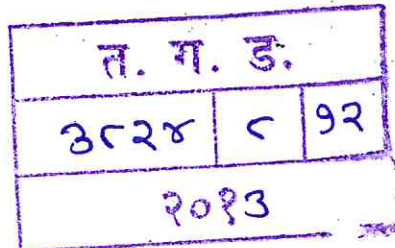 त. ग. ड.
३८२४ ८ १२
२०१३